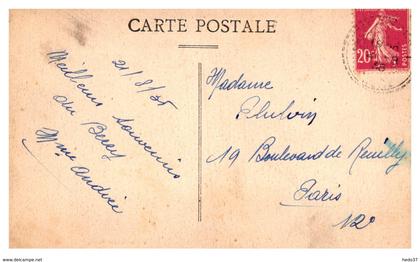 CARTE POSTALE
21/8/35
Meilleurs souvenirs
du Berry
Mme Andrée
Madame
19 Boulevard de Reuilly
Paris
12e
20
POSTES
www.delcampe.net
hedo37